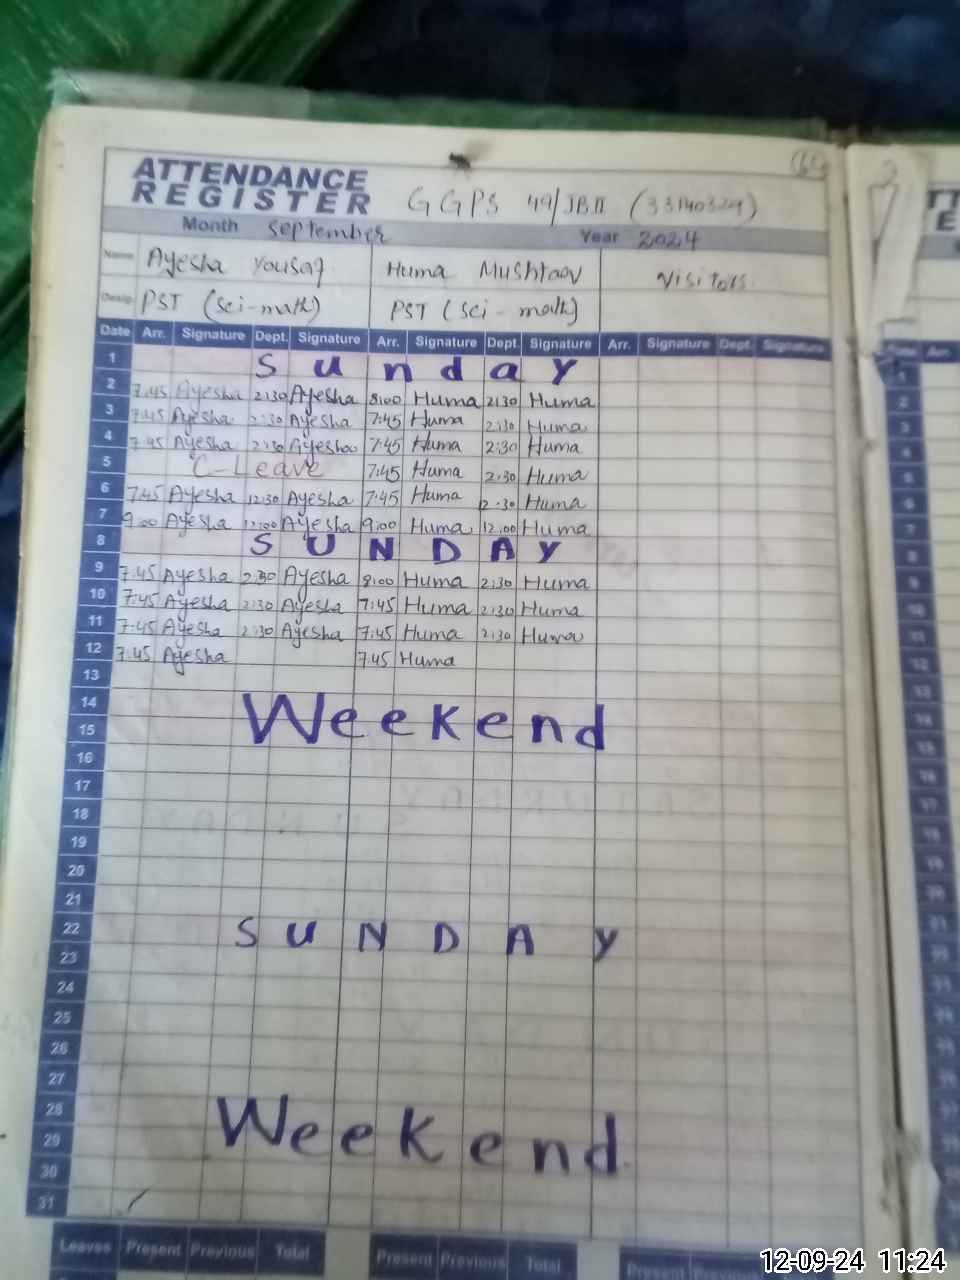 ATTENDANCE
REGISTER
G G P S 49/JB II (33140329)
Month September Year 2024
Name Ayesha Yousaf Huma Mushtaq Visitors
Desig. PST (Sci-math) PST (Sci-math)
Date Arr. Signature Dept. Signature Arr. Signature Dept. Signature Arr. Signature Dept. Signature
1 Sunday
2 7:45 Ayesha 2:30 Ayesha 8:00 Huma 2:30 Huma
3 7:45 Ayesha 2:30 Ayesha 7:45 Huma 2:30 Huma
4 7:45 Ayesha 2:30 Ayesha 7:45 Huma 2:30 Huma
5 C-Leave 7:45 Huma 2:30 Huma
6 7:45 Ayesha 12:30 Ayesha 7:45 Huma 2:30 Huma
7 9:00 Ayesha 12:00 Ayesha 9:00 Huma 12:00 Huma
8 SUNDAY
9 7:45 Ayesha 2:30 Ayesha 8:00 Huma 2:30 Huma
10 7:45 Ayesha 2:30 Ayesha 7:45 Huma 2:30 Huma
11 7:45 Ayesha 2:30 Ayesha 7:45 Huma 2:30 Huma
12 7:45 Ayesha 7:45 Huma
13
14 Weekend
15
16
17
18
19
20
21
22 SUNDAY
23
24
25
26
27
28 Weekend
29
30
31
Leaves Present Previous Total Present Previous Total Present
12-09-24 11:24